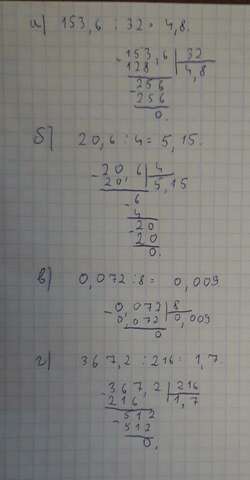 а) 153,6 : 32 = 4,8.
153,6 | 32
128 | 4,8
256
256
0.
б) 20,6 : 4 = 5,15.
20,6 | 4
20, | 5,15
6
4
20
20
0.
в) 0,072 : 8 = 0,009
0,072 | 8
0,072 | 0,009
0
г) 367,2 : 216 = 1,7
367,2 | 216
216 | 1,7
1512
512
0.